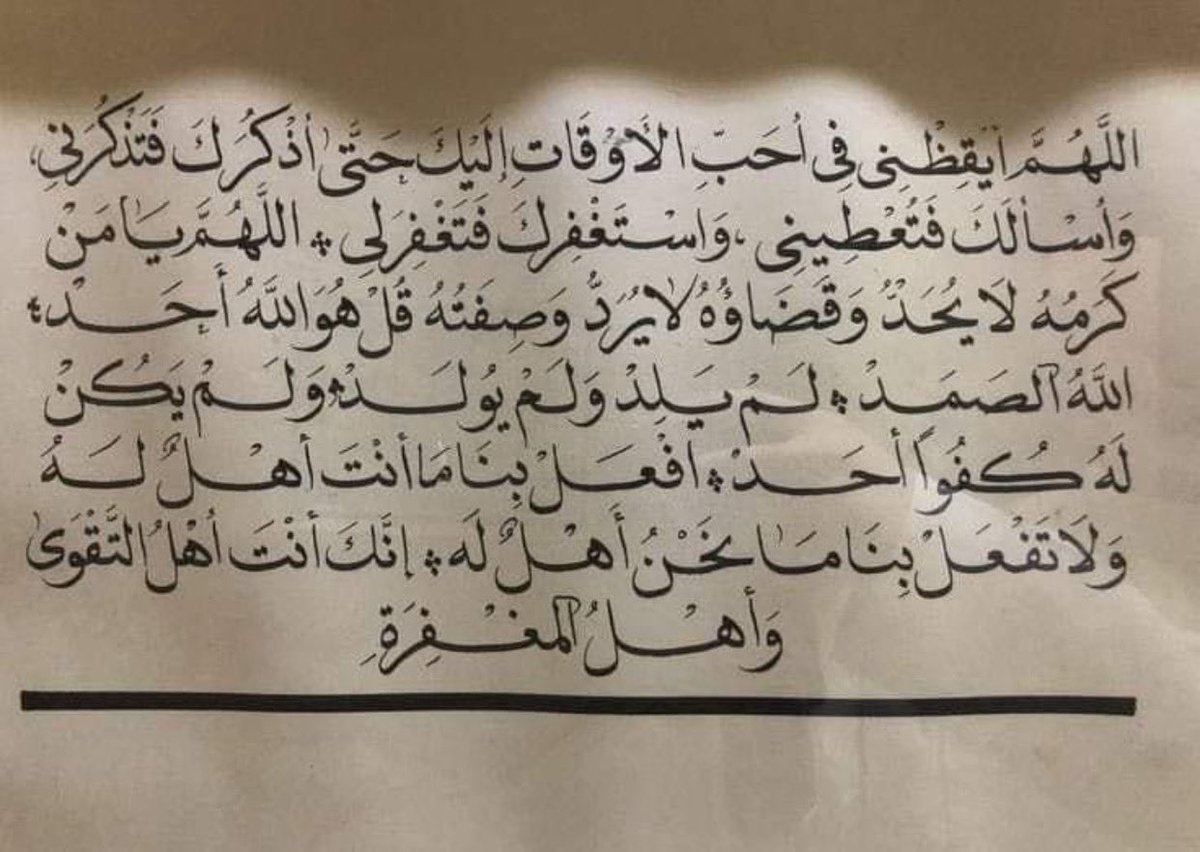 اللَّهُمَّ أَيْقِظْنِي فِي أَحَبِّ الأَوْقَاتِ إِلَيْكَ حَتَّى أَذْكُرَكَ فَتَذْكُرَنِي،
وَأَسْأَلَكَ فَتُعْطِينِي، وَاسْتَغْفِرَكَ فَتَغْفِرَ لِي اللَّهُمَّ يَا مَنْ
كَرَمُهُ لَا يُحَدُّ وَقَضَاؤُهُ لَا يُرَدُّ وَصِفَتُهُ قُلْ هُوَ اللَّهُ أَحَدْ
اللَّهُ الصَمَدْ لَمْ يَلِدْ وَلَمْ يُولَدْ وَلَمْ يَكُنْ
لَهُ كُفُواً أَحَدْ افْعَلْ بِنَا مَا أَنْتَ أَهْلٌ لَهُ
وَلَا تَفْعَلْ بِنَا مَا نَحْنُ أَهْلٌ لَه إِنَّكَ أَنْتَ أَهْلُ التَّقْوَى
وَأَهْلُ المَغْفِرَةِ